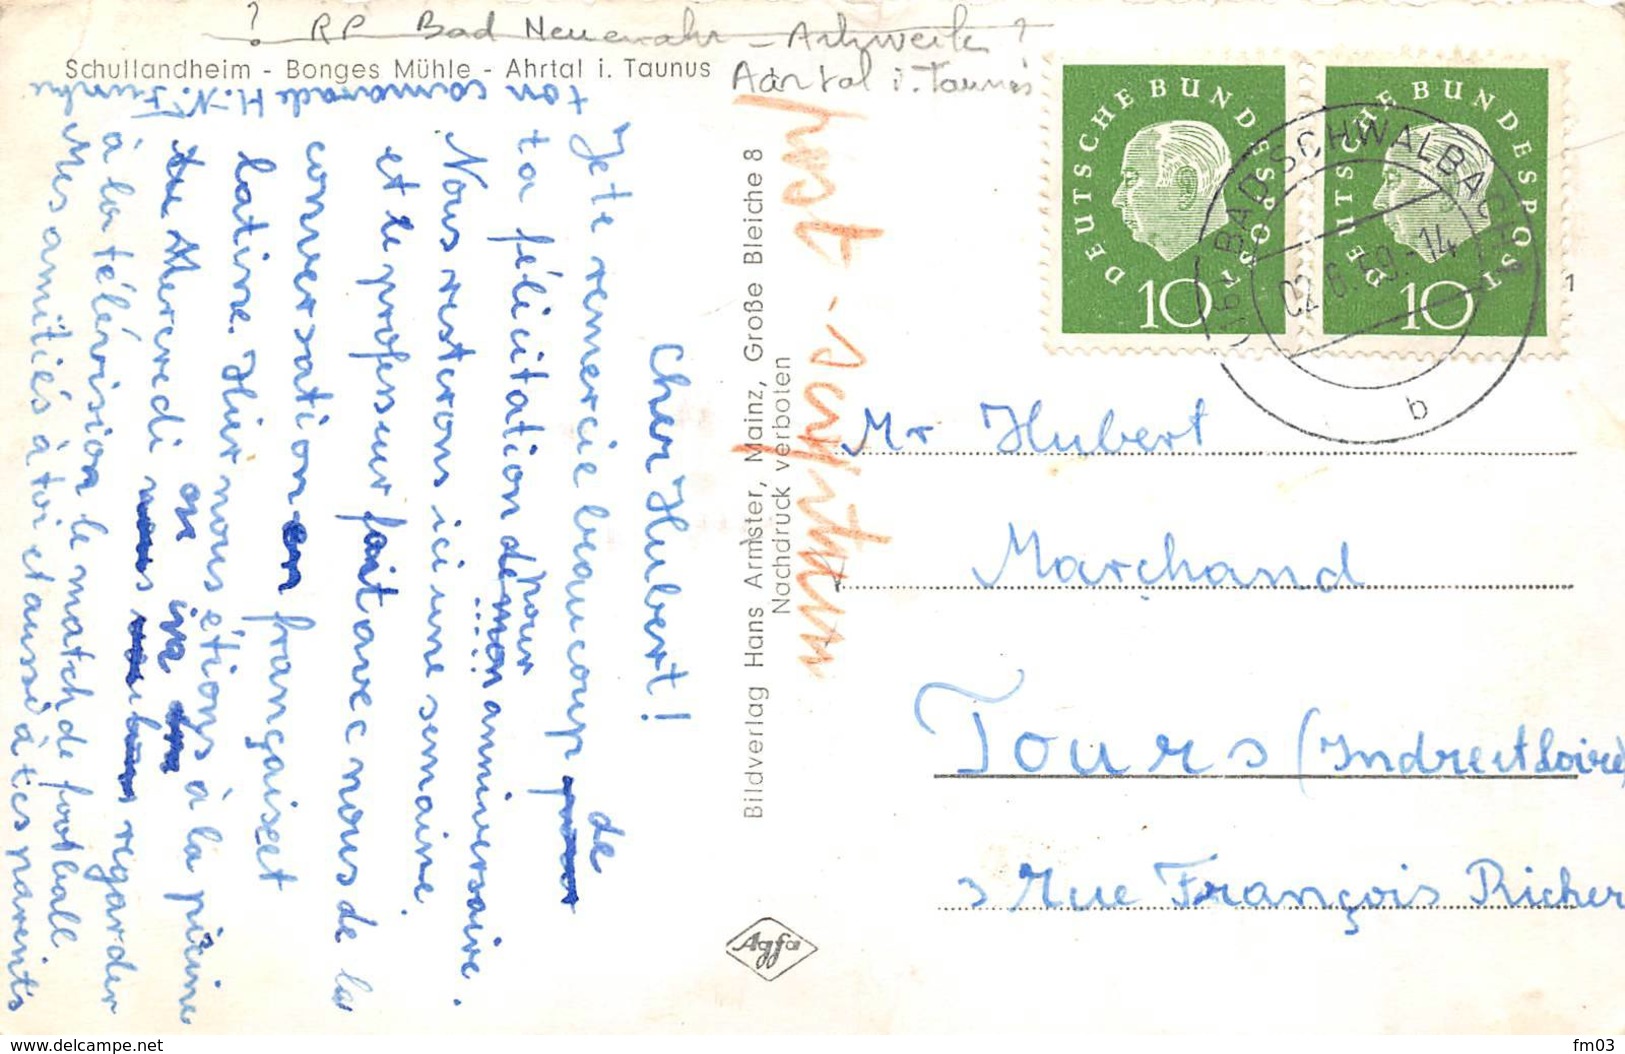 ? RP Bad Neuenahr - Ahrweiler ?
Schullandheim - Bonges Mühle - Ahrtal i. Taunus
Aartal i. Taunus
Cher Hubert!
Je te remercie beaucoup de
ta félicitation de pour
mon anniversaire.
Nous resterons ici une semaine
et le professeur fait avec nous de la
conversation en français et
latine. Hier nous étions à la piscine
Mercredi on ira
regarder
à la télévision le match de football
Mes amitiés à toi et aussi à tes parents
ton camarade H.-N.
Bildverlag Hans Armster, Mainz, Große Bleiche 8
Nachdruck verboten
Agfa
DEUTSCHE BUNDESPOST
10
DEUTSCHE BUNDESPOST
10
(16) BAD SCHWALBACH
02.6.59.-14
b
1
Mr Hubert
Marchand
Tours (Indre et Loire)
3 Rue François Richer
delcampe.net
fm03